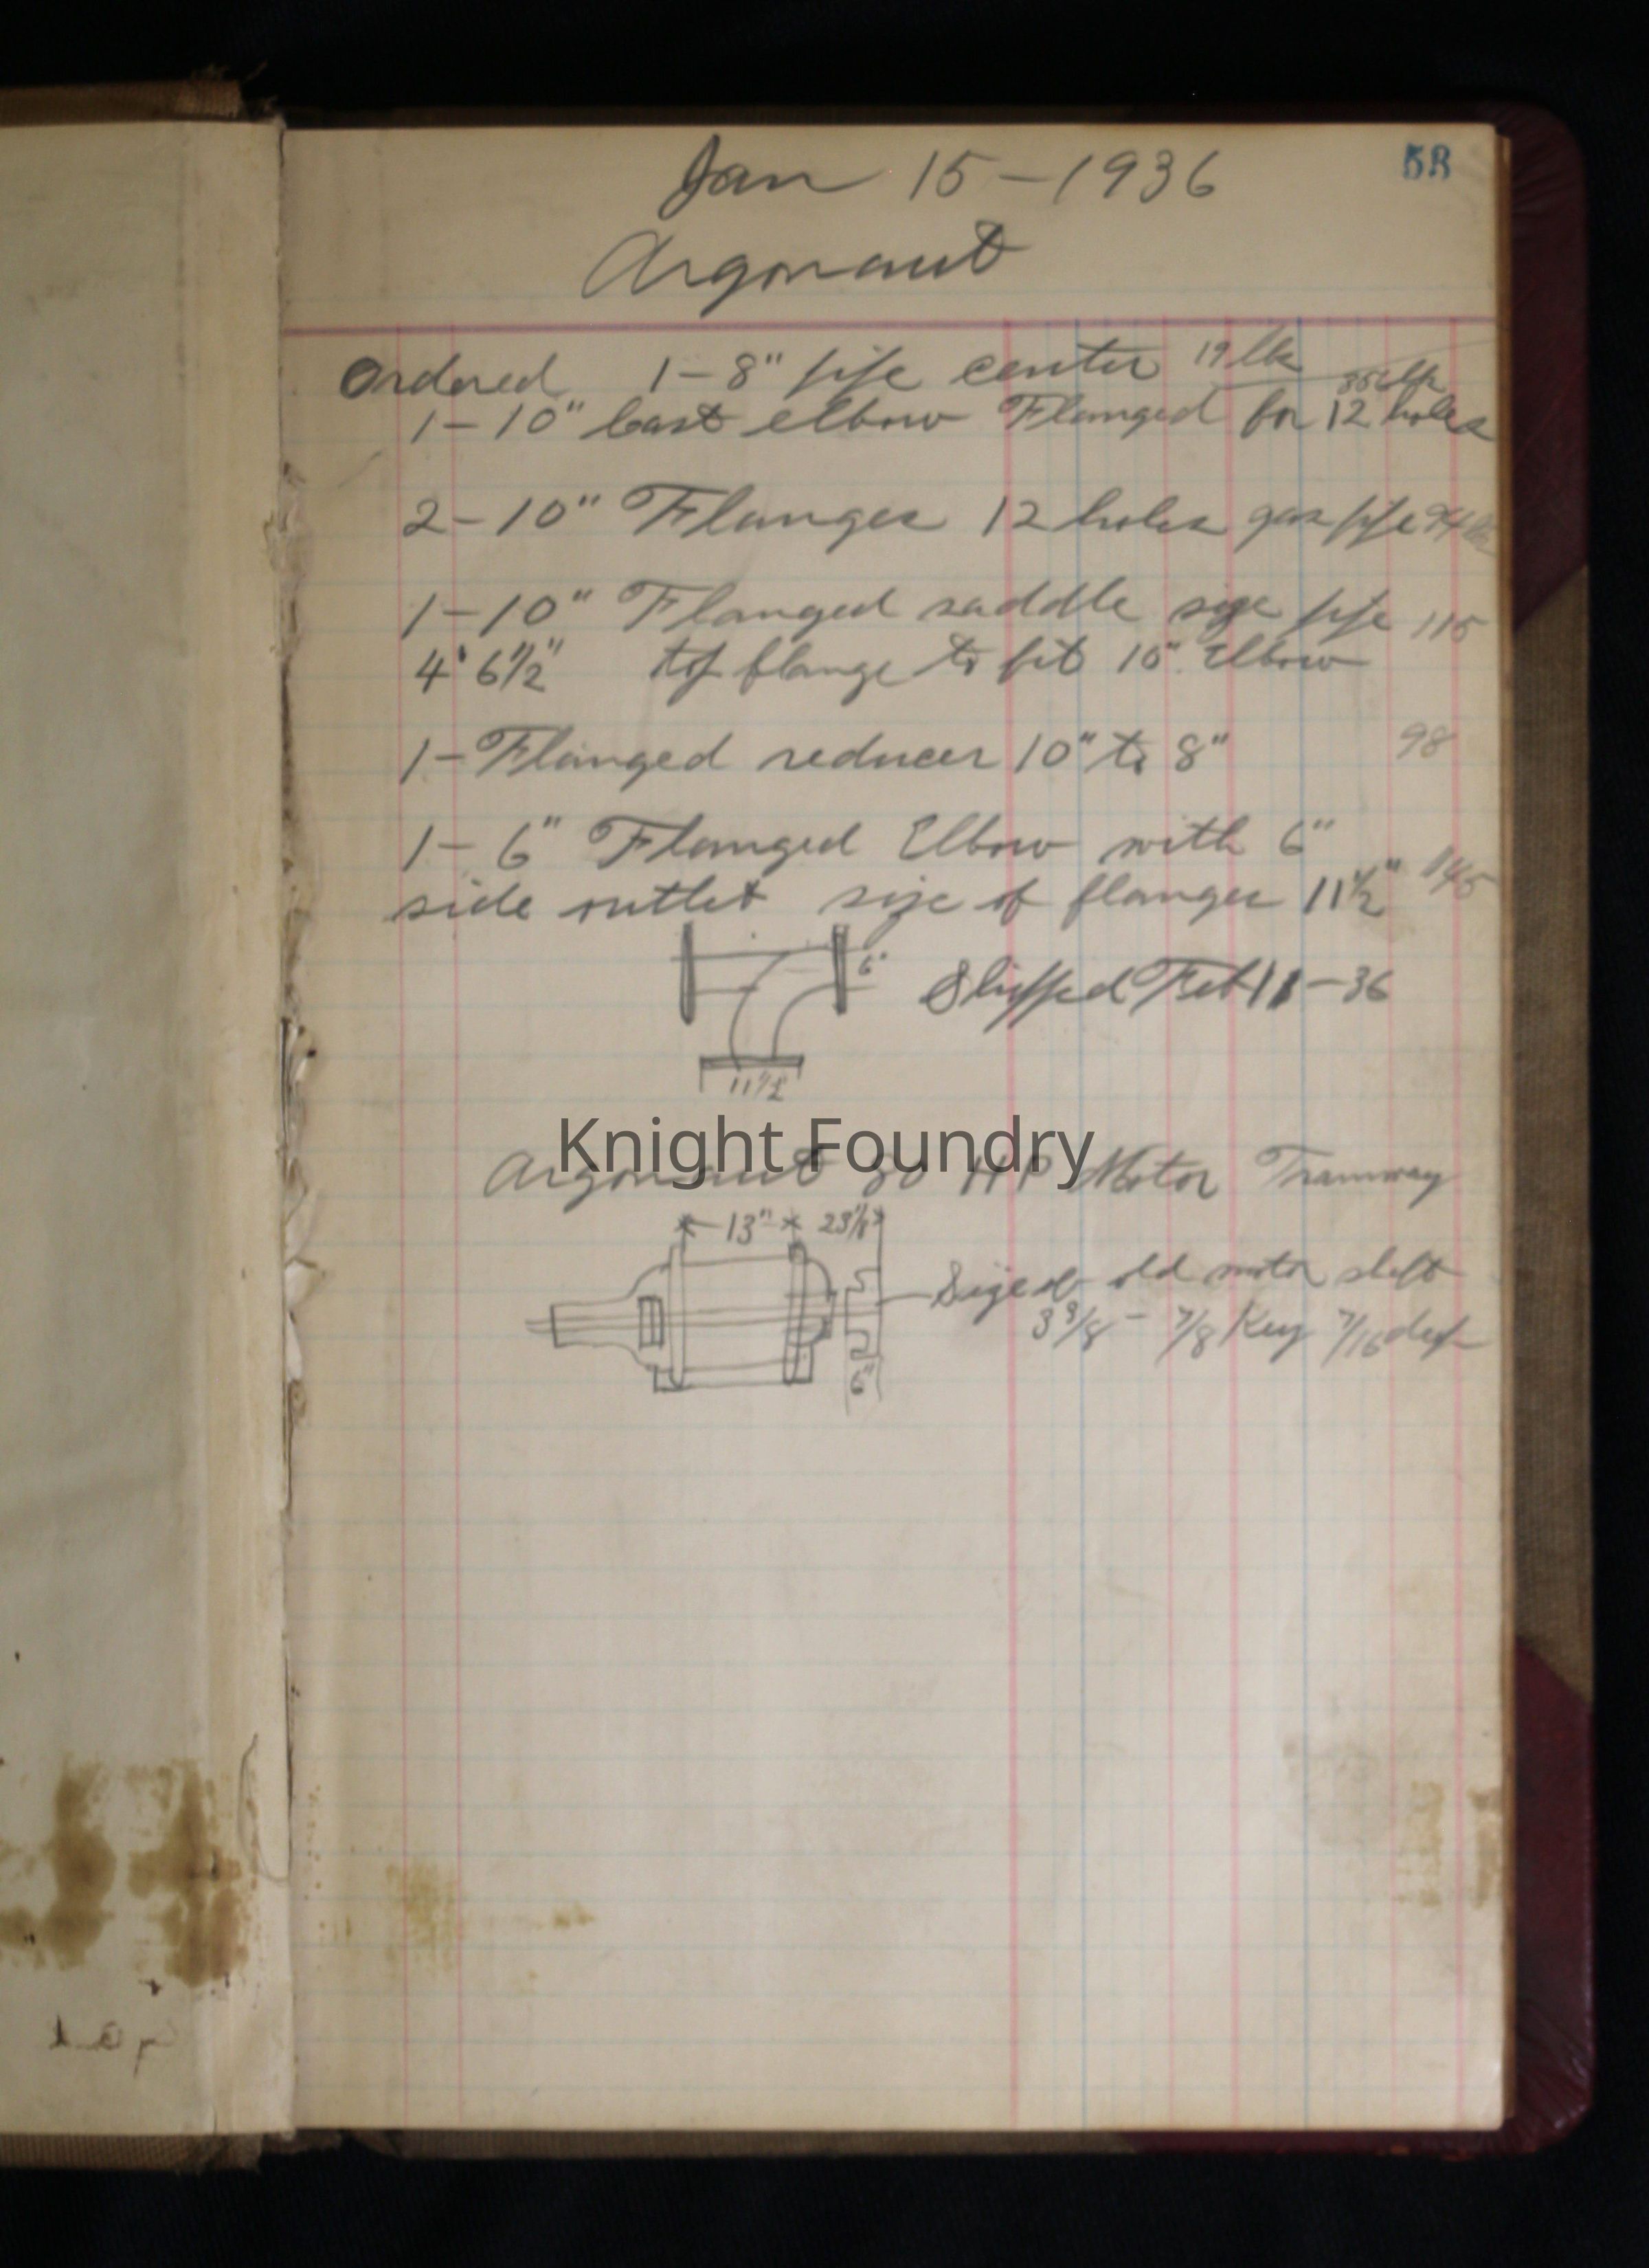 58
Jan 15 - 1936
Argonaut
Ordered 1 - 8" pipe center 19 lb
1 - 10" Cast elbow Flanged for 12 holes
2 - 10" Flanges 12 holes gas pipe 94 lb
1 - 10" Flanged saddle size pipe 115
4' 6 1/2" top flange to fit 10" Elbow
1 - Flanged reducer 10" to 8" 98
1 - 6" Flanged Elbow with 6"
side outlet size of flanges 11 1/2" 145
6"
Shipped Feb 11 - 36
11 1/2
Knight Foundry
Argonaut HP Motor Tramway
13" 23 1/8
Size of old motor shaft
3 3/8 - 7/8 Key 7/16 deep
6"